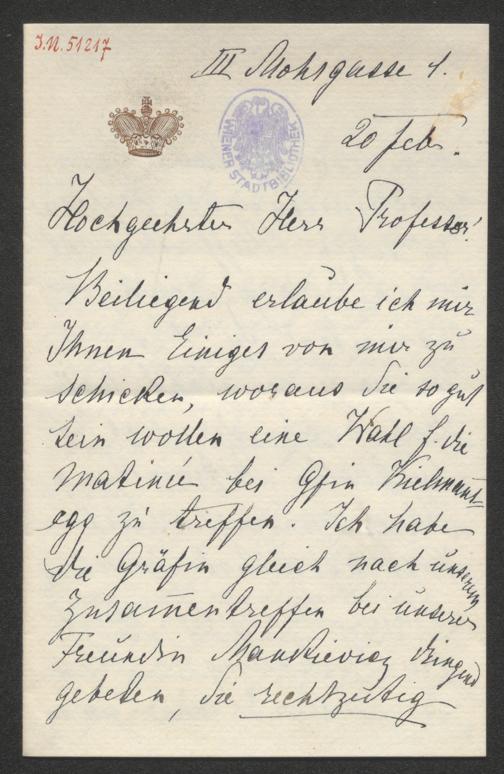 J.N. 51217
III Mohsgasse 1.
WIENER STADTBIBLIOTHEK
20 Feb.
Hochgeehrter Herr Professor!
Beiliegend erlaube ich mir
Ihnen Einiges von mir zu
schicken, woraus Sie so gut
sein wollen eine Wahl f. die
Matinée bei Gfin Kielmanns-
egg zu treffen. Ich habe
die Gräfin gleich nach unserem
Zusam̄entreffen bei unserer
Freundin Mankiewicz dringend
gebeten, Sie rechtzeitig